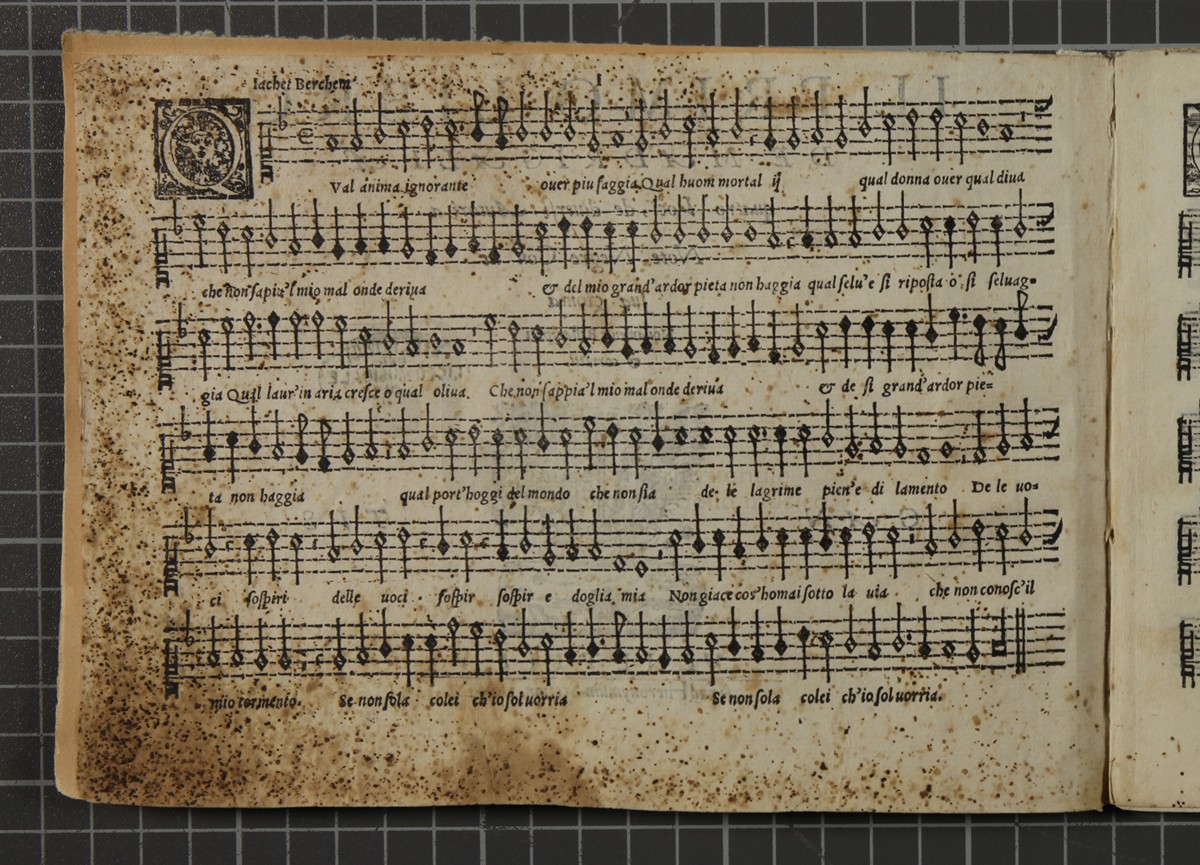 Iachet Berchem
QVal anima ignorante ouer piu saggia Qual huom mortal ij qual donna ouer qual diua
che non sapia'l mio mal onde deriua & del mio grand'ardor pieta non haggia qual selu'e si riposta o si seluag=
gia Qual laur'in aria cresce o qual oliua. Che non sappia'l mio mal onde deriua & de si grand'ardor pie=
ta non haggia qual port'hoggi del mondo che non sia de le lagrime pien'e di lamento De le uo=
ci sospiri delle uoci sospir sospir e doglia mia Non giace cos'homai sotto la uia che non conosc'il
mio tormento. Se non sola colei ch'io sol uorria Se non sola colei ch'io sol uorria.